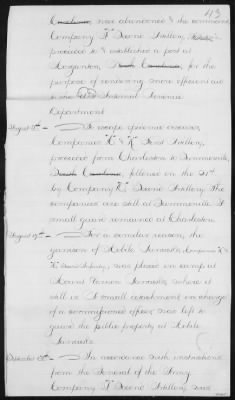 43
Carolina, was abandoned & the command
Company "L" Second Artillery,
proceeded to & established a post at
Morganton, North Carolina, for the
purpose of rendering more efficient aid
to the Internal Revenue
Department
August 8th — To escape epidemic diseases,
Companies "C" & "K" First Artillery,
proceeded from Charleston to Summerville,
South Carolina, followed on the 21st
by Company "E" Second Artillery. The
companies are still at Summerville. A
small guard remained at Charleston.
August 19th — For a similar reason, the
garrison of Mobile Barracks, Companies
Infantry, was placed in camp at
Mount Vernon Barracks, where it
still is. A small detachment in charge
of a commissioned officer was left to
guard the public property at Mobile
Barracks.
— In accordance with instructions
from the General of the Army
Company Second Artillery, was